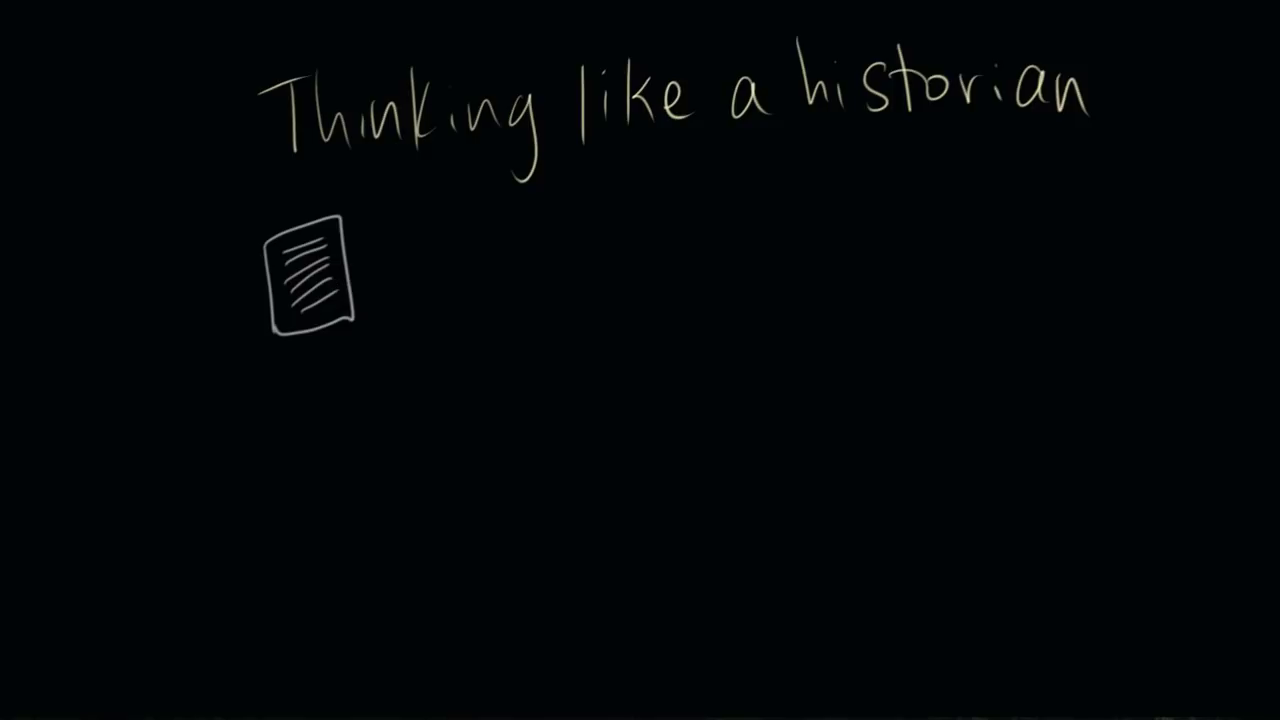 Thinking like a historian